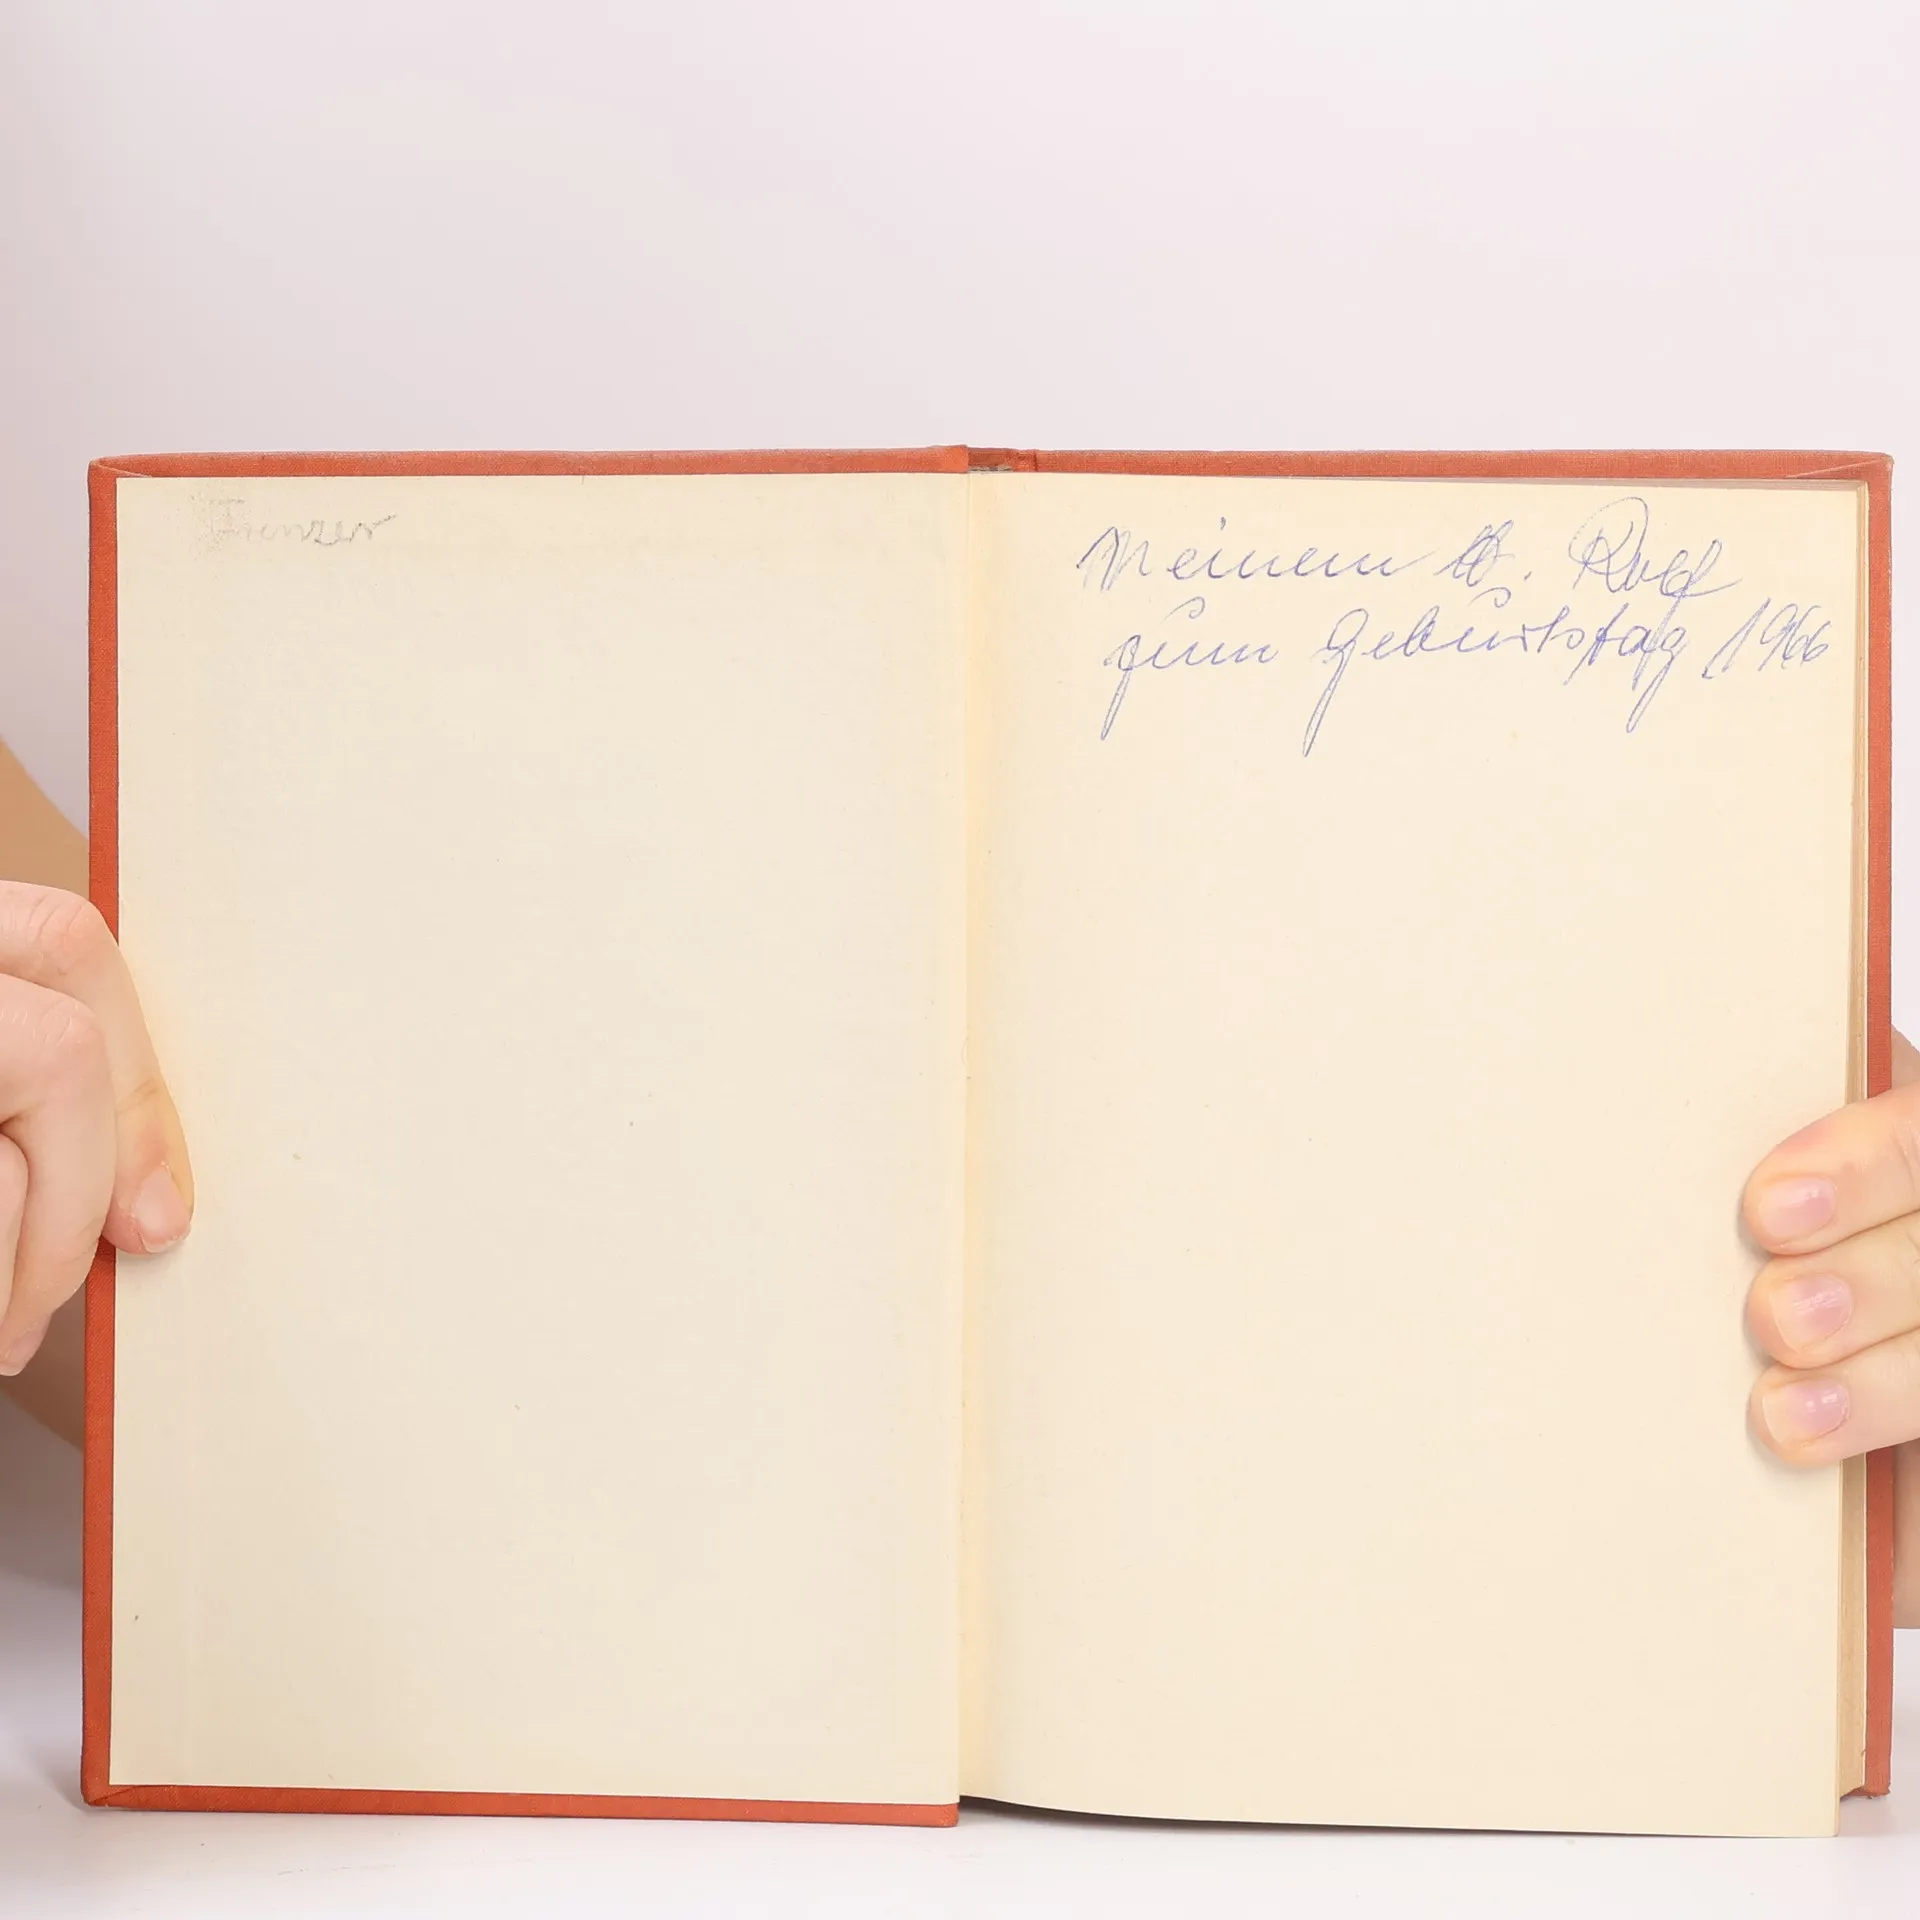 Frenzer
Meinem lb. Rolf
zum Geburtstag 1966